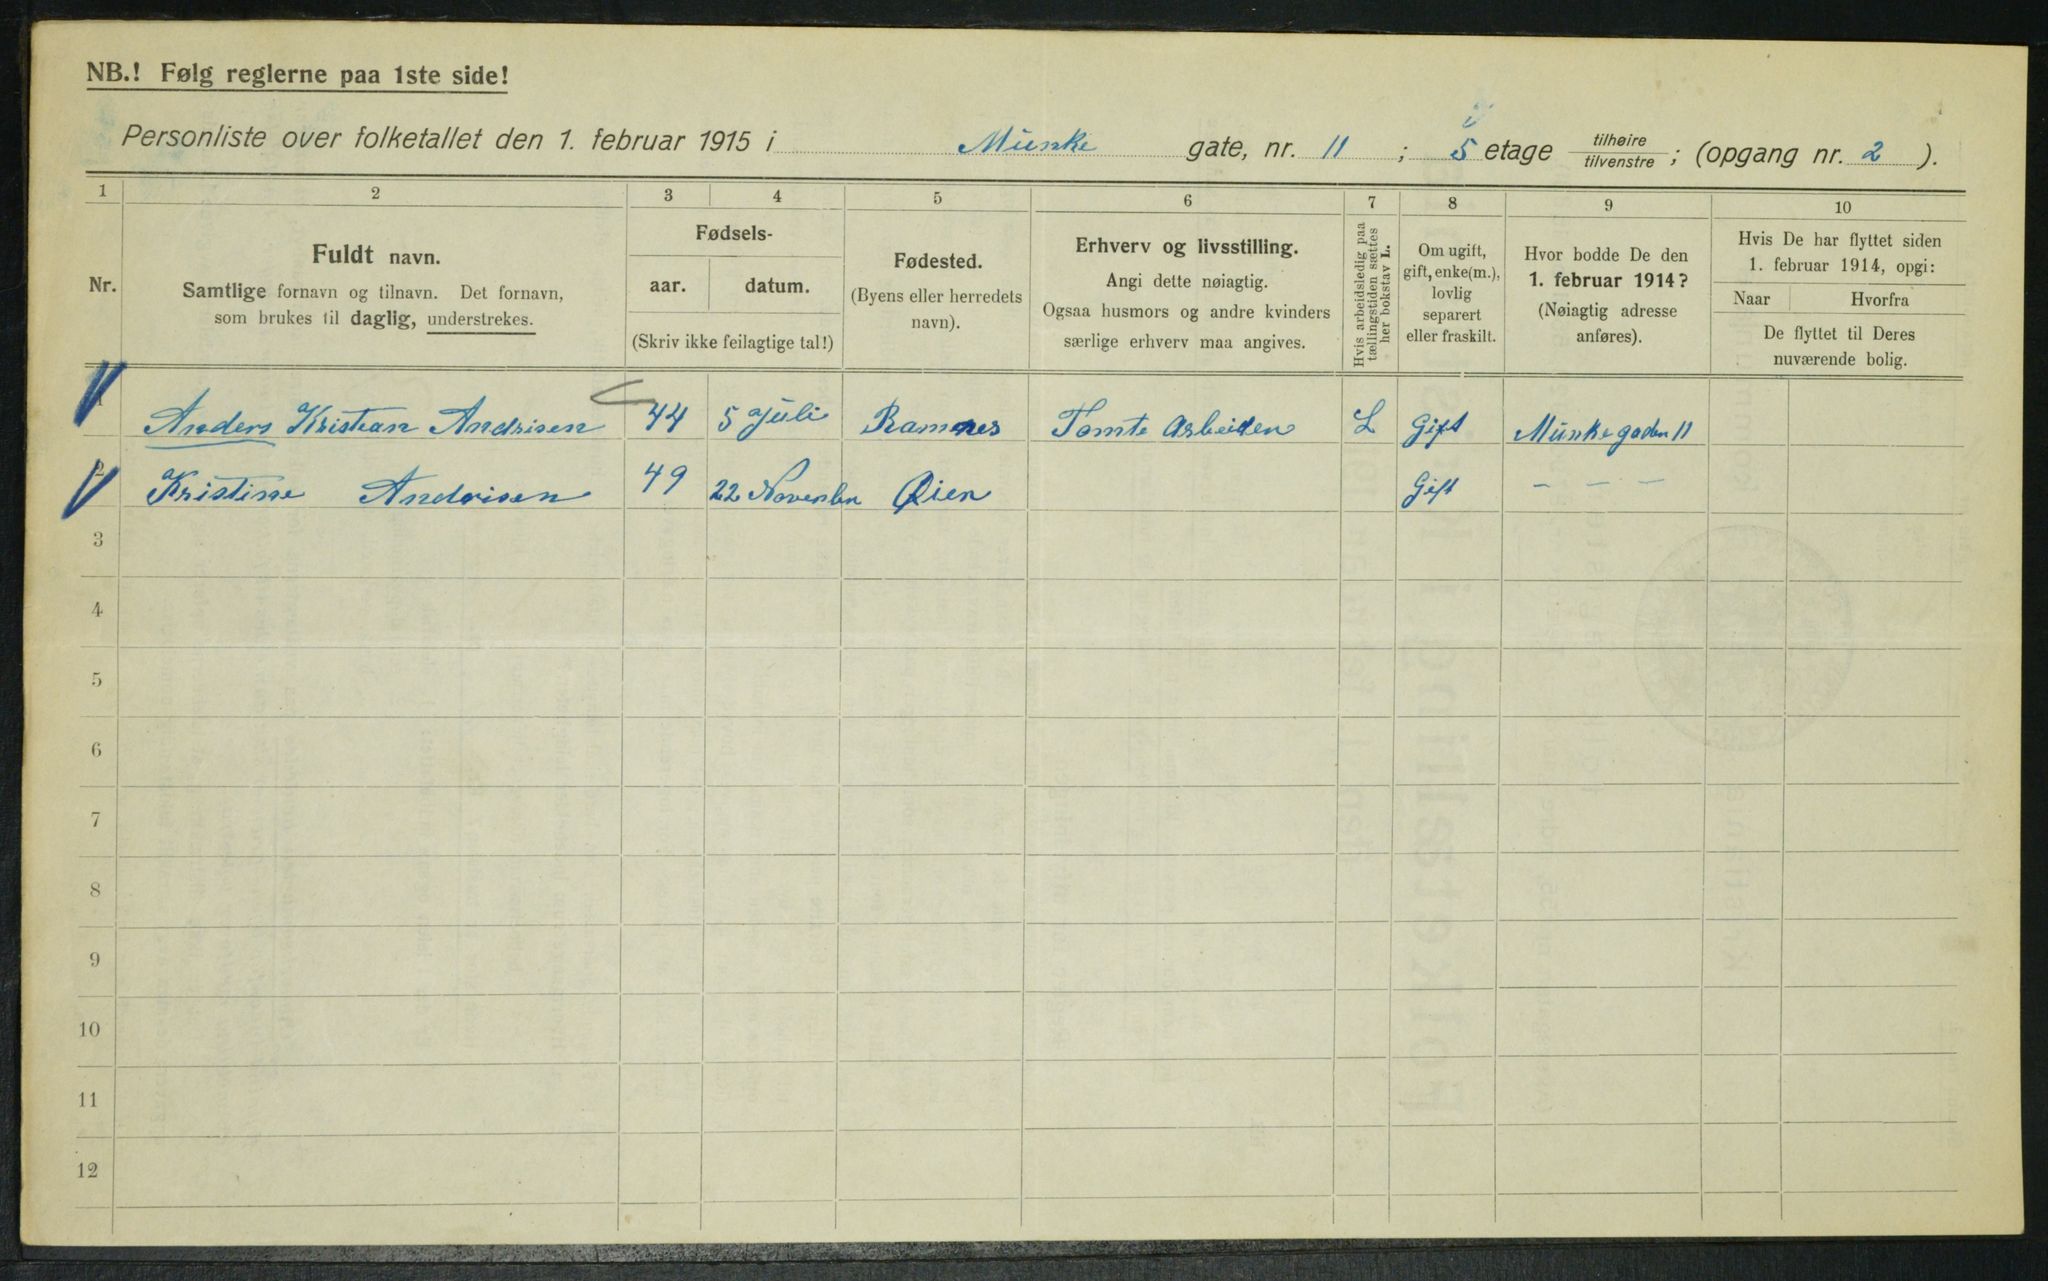 NB.! Følg reglerne paa 1ste side!
Personliste over folketallet den 1. februar 1915 i Munke gate, nr. 11 ; 5 etage tilhøire tilvenstre ; (opgang nr. 2 ).
1 2 3 4 5 6 7 8 9 10
Nr.
Fuldt navn.
Samtlige fornavn og tilnavn. Det fornavn,
som brukes til daglig, understrekes.
Fødsels-
aar. datum.
(Skriv ikke feilagtige tal!)
Fødested.
(Byens eller herredets
navn).
Erhverv og livsstilling.
Angi dette nøiagtig.
Ogsaa husmors og andre kvinders
særlige erhverv maa angives.
Hvis arbeidsledig paa
tællingstiden sættes
her bokstav L.
Om ugift,
gift, enke(m.),
lovlig
separert
eller fraskilt.
Hvor bodde De den
1. februar 1914?
(Nøiagtig adresse
anføres).
Hvis De har flyttet siden
1. februar 1914, opgi:
Naar Hvorfra
De flyttet til Deres
nuværende bolig.
1 Anders Kristian Andrisen 44 5 Juli Ramnes Tomte Arbeiden L Gift Munkegaden 11
2 Kristine Andrisen 49 22 November Øien Gift - - -
3
4
5
6
7
8
9
10
11
12